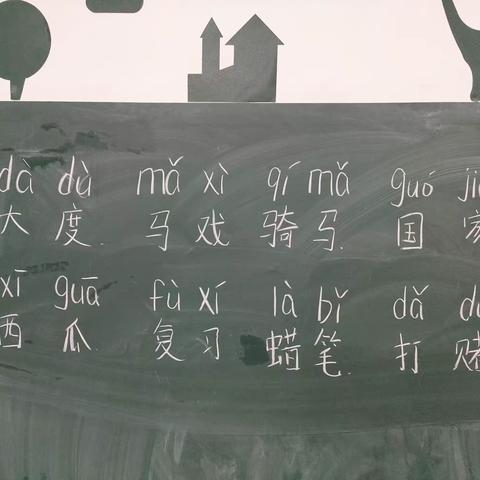 dà dù mǎ xì qí mǎ guó jiā
大度 马戏 骑马 国家
xī guā fù xí là bǐ dǎ dǔ
西瓜 复习 蜡笔 打赌